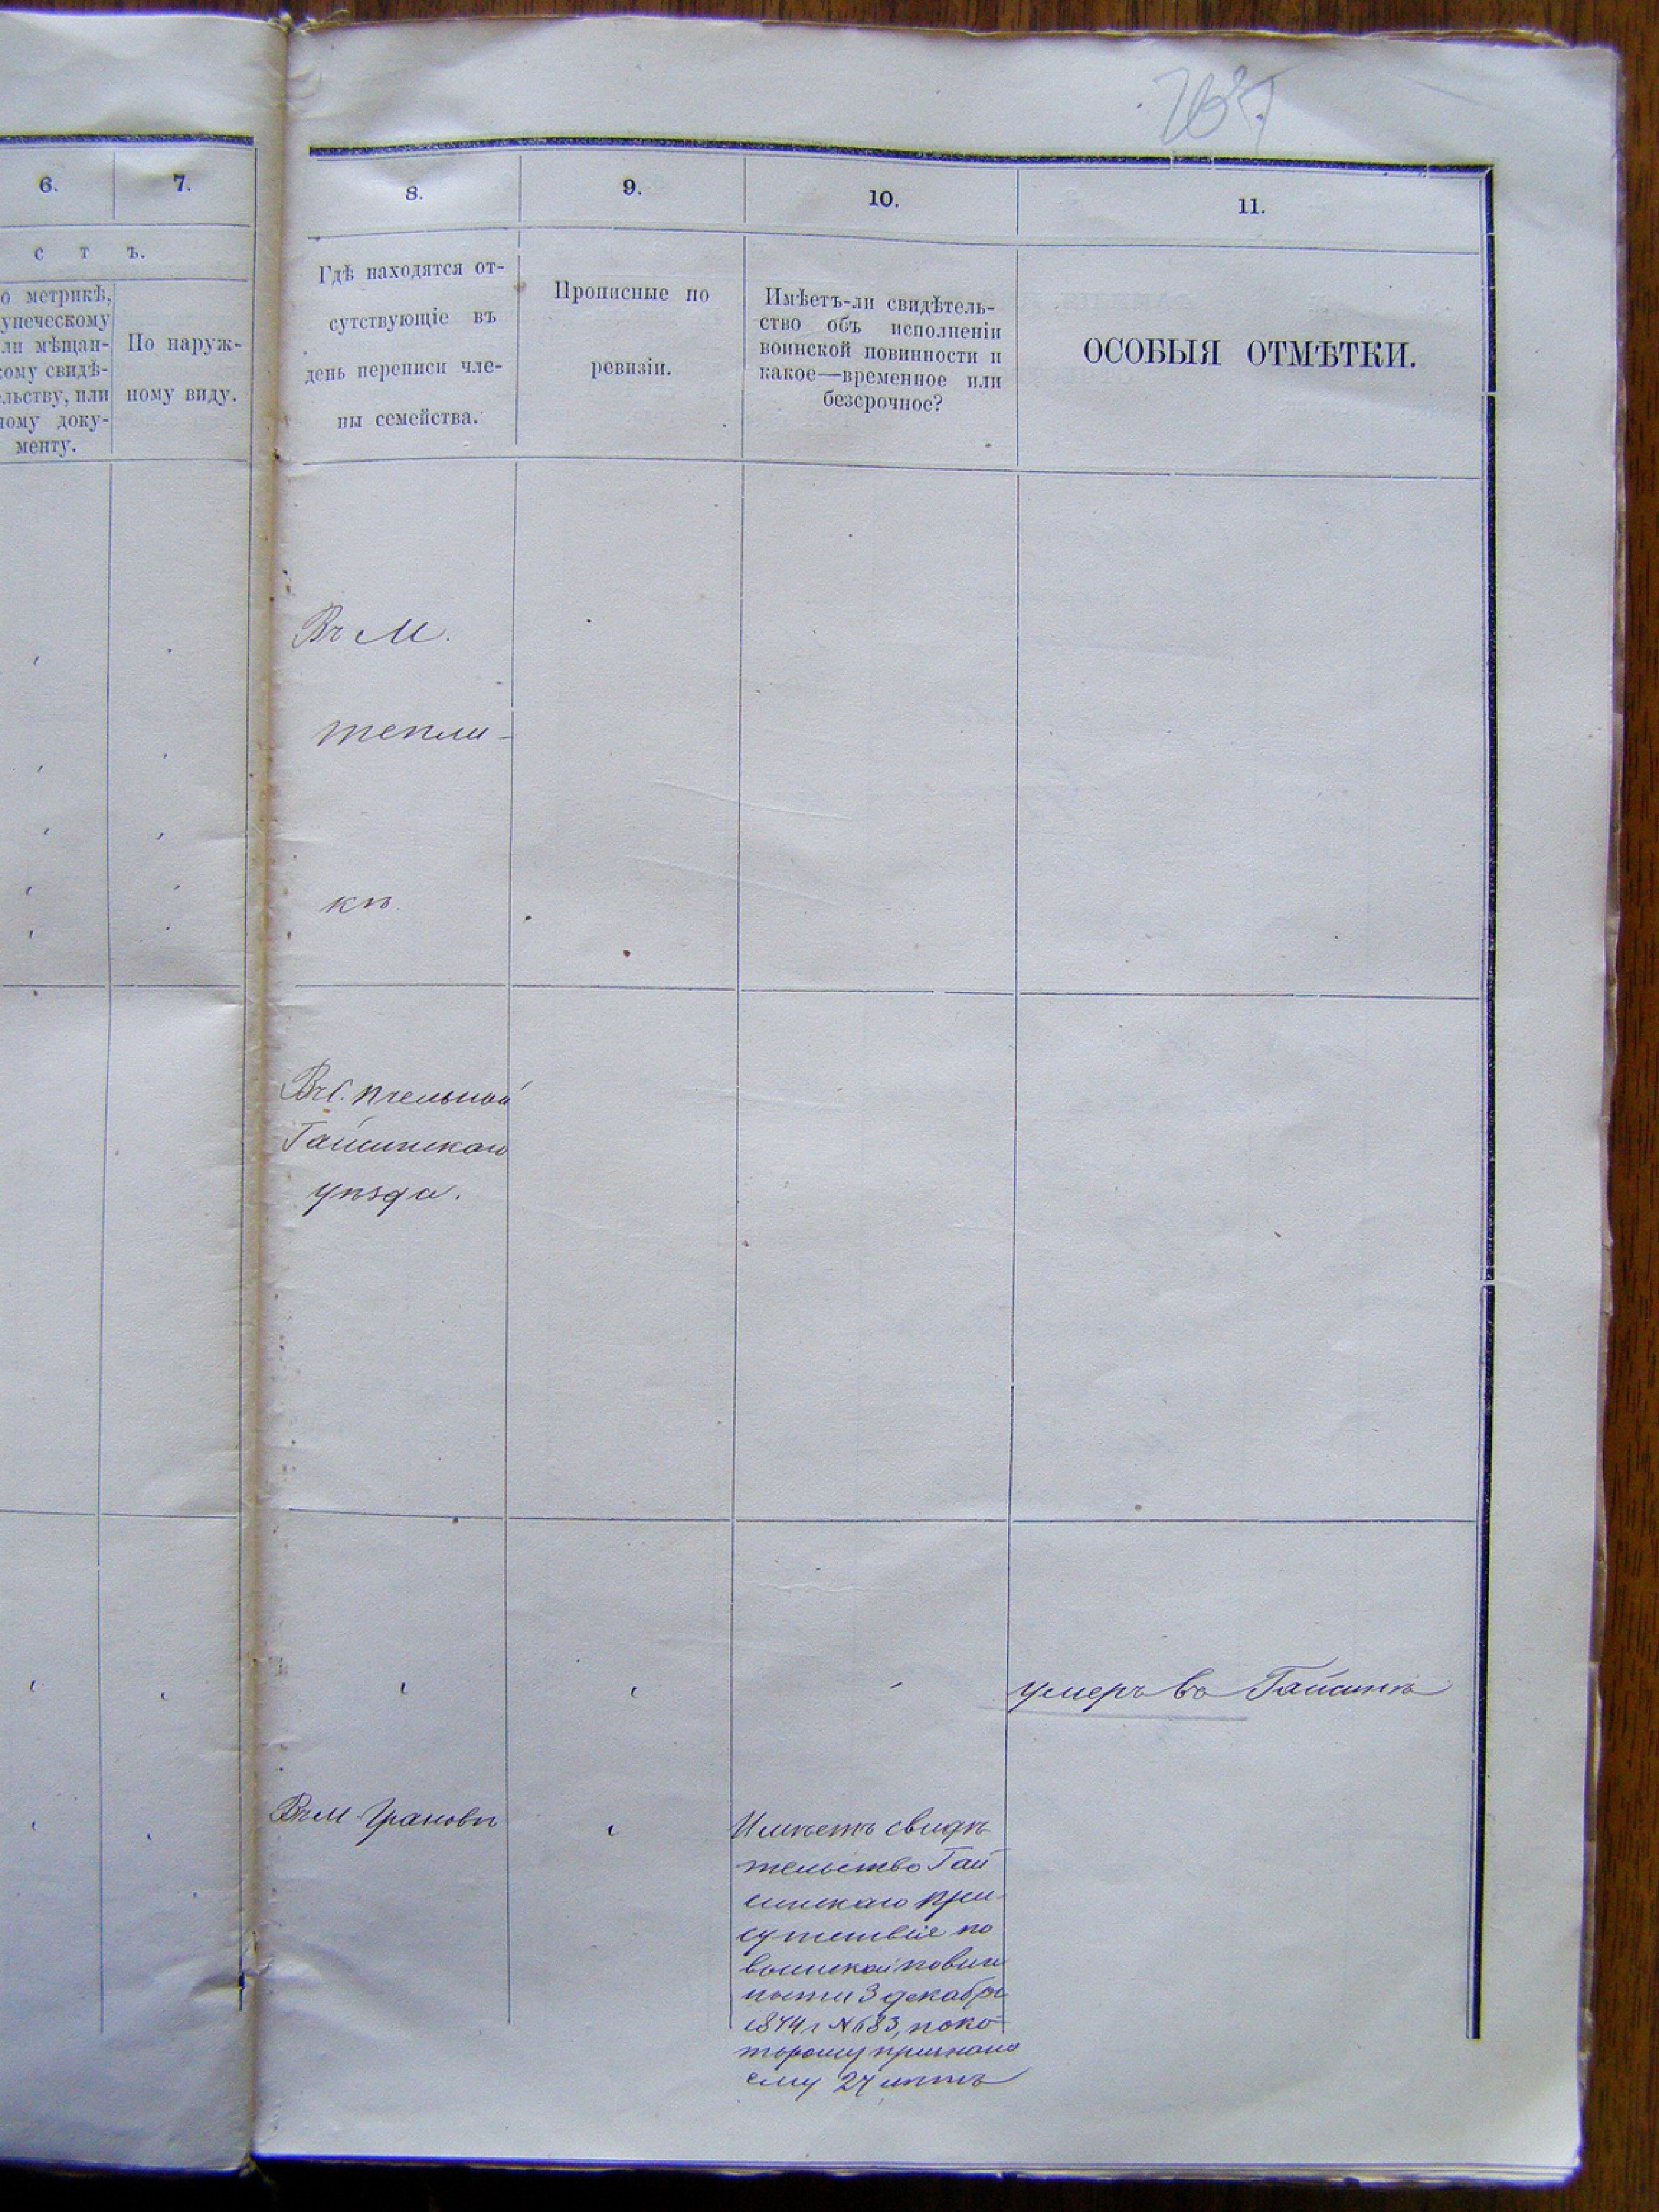 6.
7.
8.
9.
10.
11.
с т ъ.
о метрикѣ,
упеческому
ли мѣщан-
кому свидѣ-
ельству, или
ному доку-
менту.
По наруж-
ному виду.
Гдѣ находятся от-
сутствующіе въ
день переписи чле-
ны семейства.
Прописные по
ревизіи.
Имѣетъ-ли свидѣтель-
ство объ исполненіи
воинской повинности и
какое—временное или
безсрочное?
ОСОБЫЯ ОТМѢТКИ.
Въ М.
тепли-
кѣ.
Въ С. пчельной
Гайсинскаго
уѣзда.
умеръ въ Гайсинѣ
Въ М. Грановѣ
Имѣетъ свидѣ
тельство Гай
синскаго при-
сутствіе по
воинской повин
ности 3 декабря
1874 г №683, по ко-
торому признано
ему 27 лѣтъ